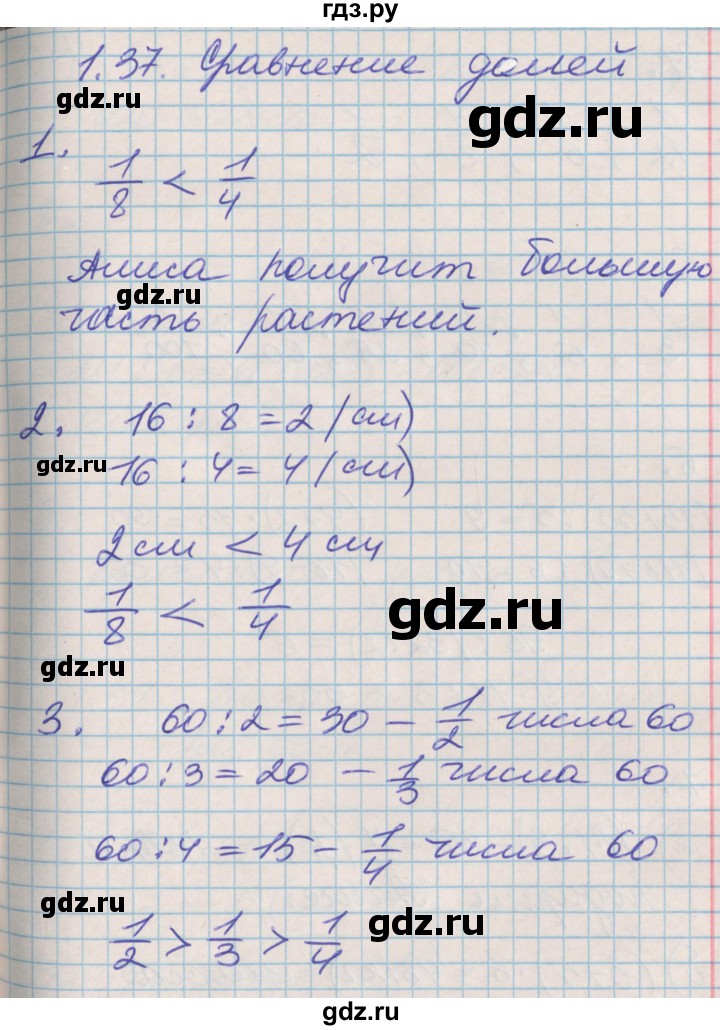 гдз.ру
1.37. Сравнение долей
gdz.ru
gdz.ru
1.
1/8 < 1/4
Алиса получит большую
gdz.ru
часть растений.
2. 16 : 8 = 2 (см)
gdz.ru
16 : 4 = 4 (см)
2 см < 4 см
1/8 < 1/4
gdz.ru
gdz.ru
3. 60 : 2 = 30 – 1/2 числа 60
60 : 3 = 20 – 1/3 числа 60
60 : 4 = 15 – 1/4 числа 60
gdz.ru
gdz.ru
1/2 > 1/3 > 1/4
gdz.ru